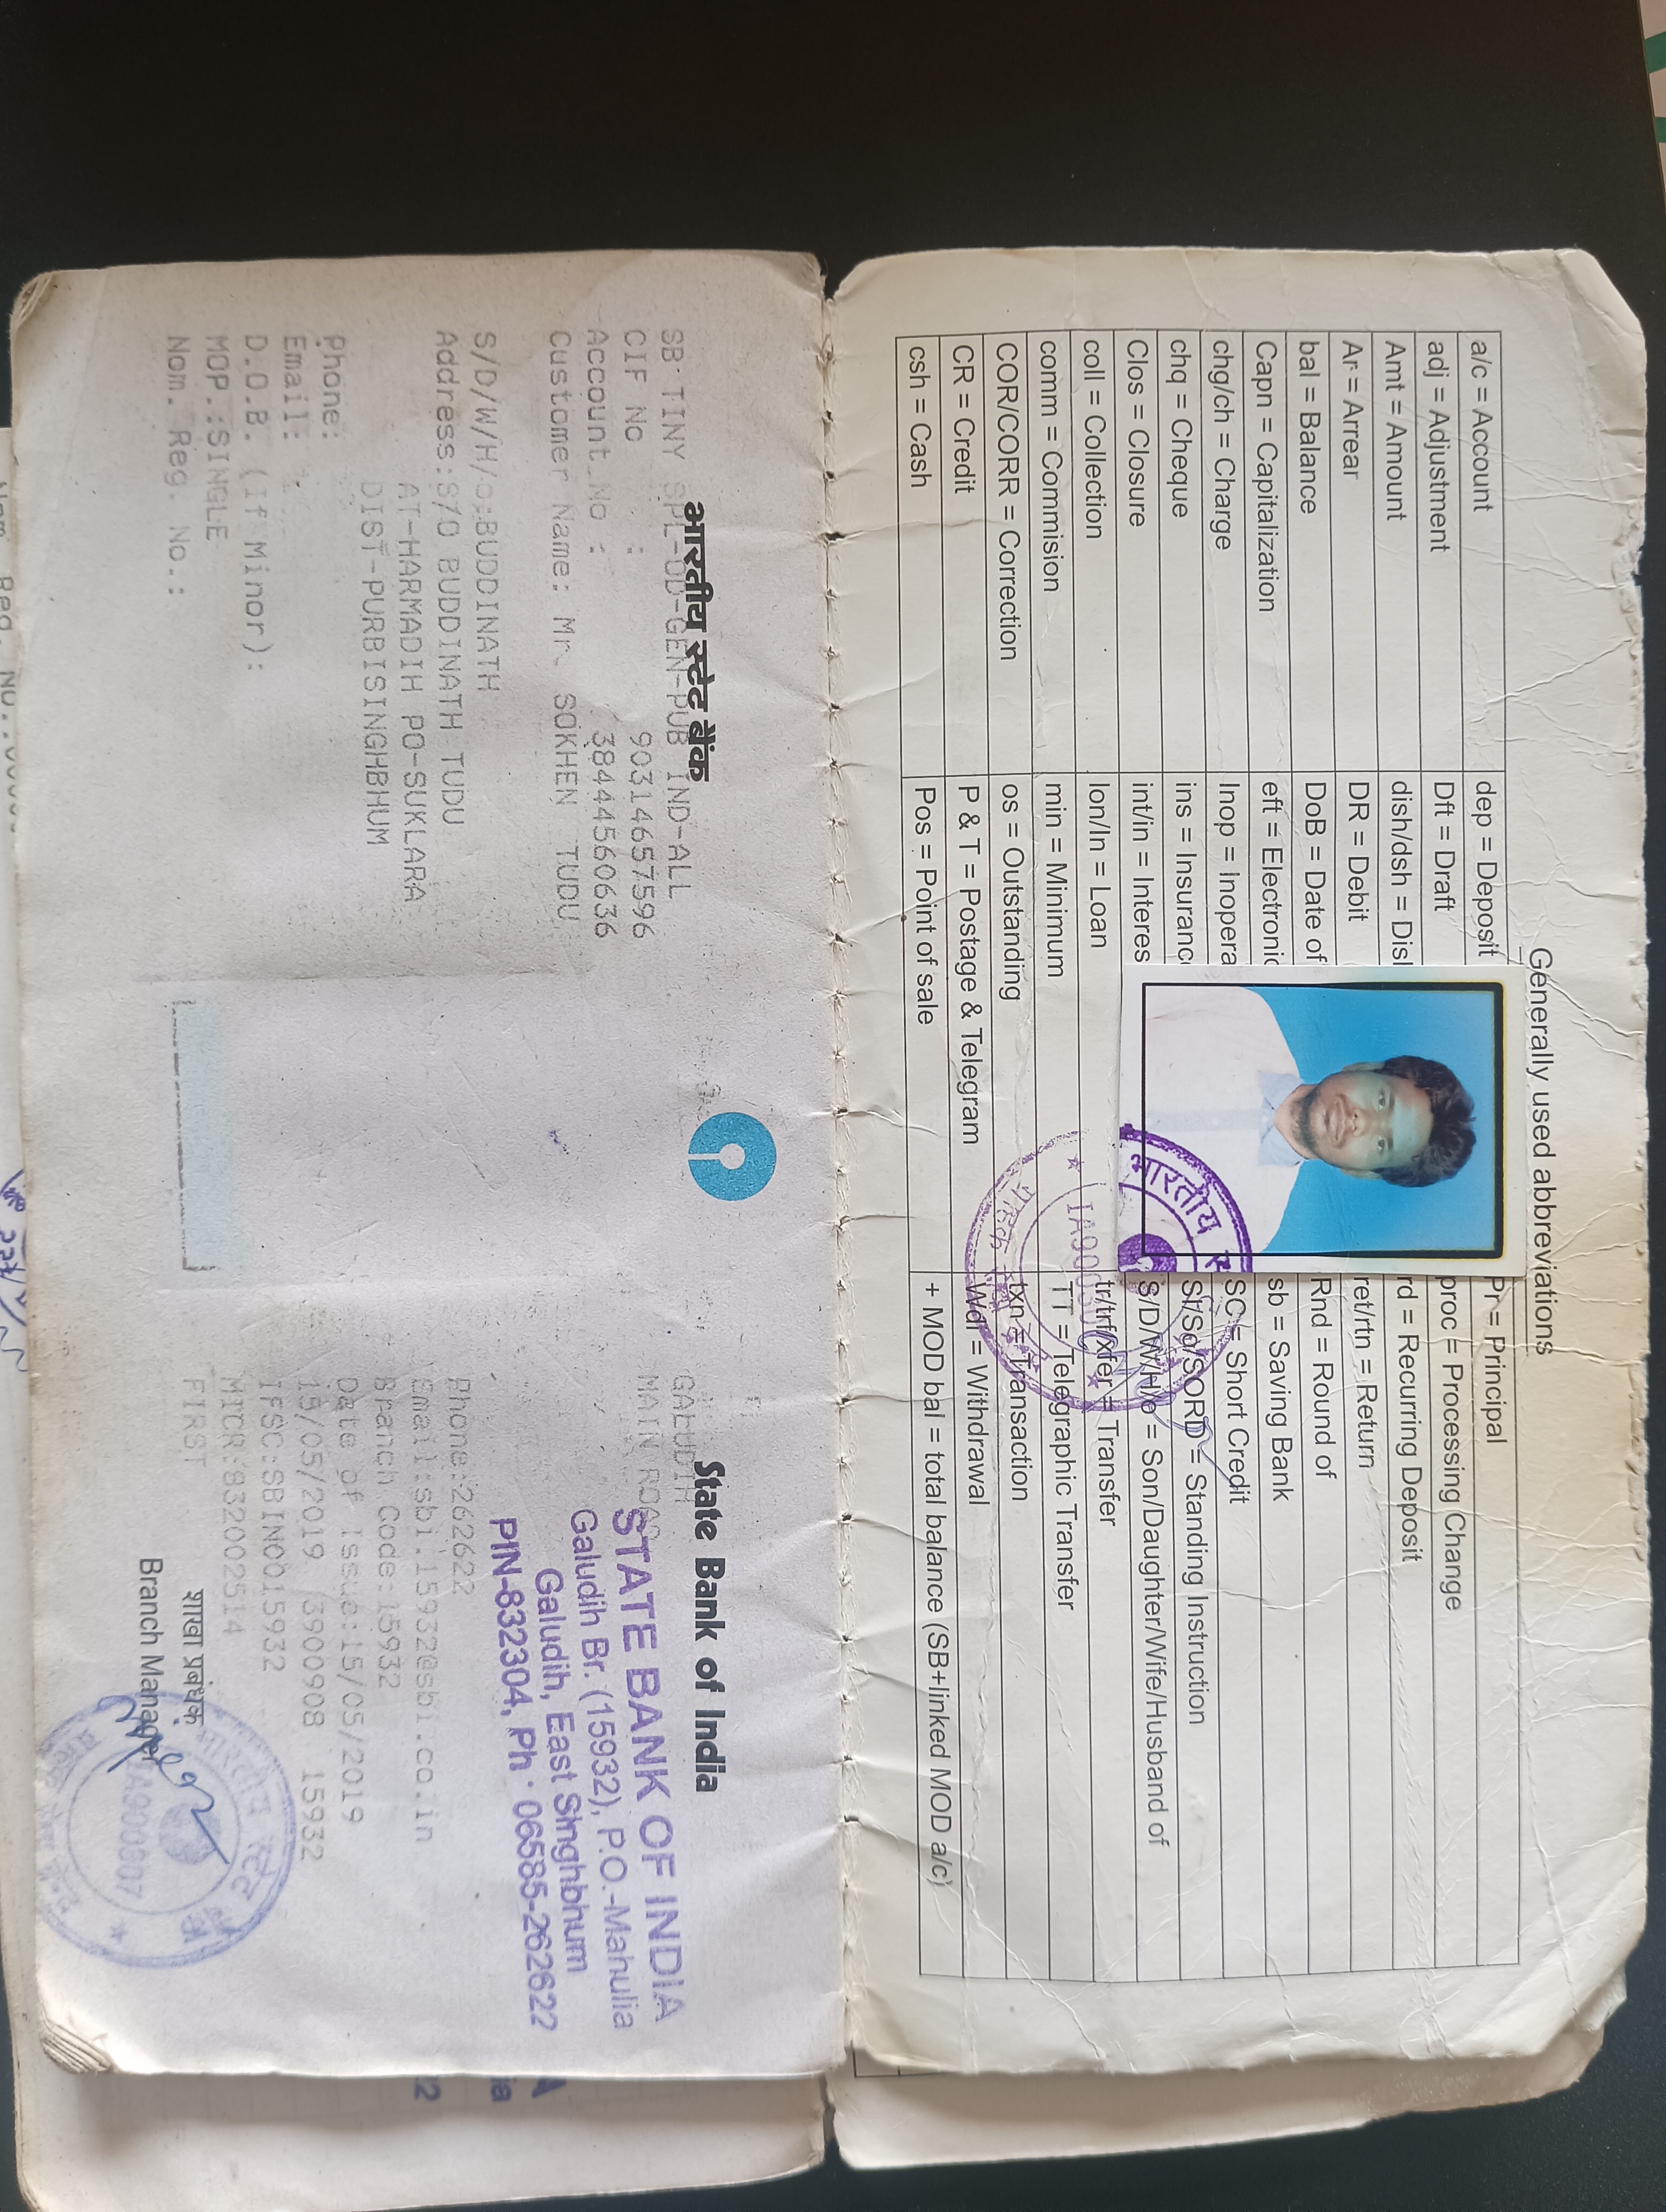 Generally used abbreviations
a/c = Account
dep = Deposit
Pr = Principal
adj = Adjustment
Dft = Draft
proc = Processing Change
Amt = Amount
dish/dsh =
rd = Recurring Deposit
Ar = Arrear
DR = Debit
ret/rtn = Return
bal = Balance
DoB = Date of
Rnd = Round of
Capn = Capitalization
eft = Electronic
sb = Saving Bank
chg/ch = Charge
Inop =
SC = Short Credit
chq = Cheque
ins =
SI/So/SORD = Standing Instruction
Clos = Closure
int/in =
S/D/W/H/o = Son/Daughter/Wife/Husband of
coll = Collection
lon/ln = Loan
tr/trf/xfer = Transfer
comm = Commision
min = Minimum
TT = Telegraphic Transfer
COR/CORR = Correction
os = Outstanding
txn = Transaction
CR = Credit
P & T = Postage & Telegram
Wdr = Withdrawal
csh = Cash
Pos = Point of sale
+ MOD bal = total balance (SB+linked MOD a/c)
भारतीय
भारतीय स्टेट बैंक
State Bank of India
SB TINY SPL-OD-GEN-PUB IND-ALL
CIF No : 90314657596
Account No : 38444560636
Customer Name: Mr. SOKHEN TUDU
S/D/W/H/o:BUDDINATH
Address:S/O BUDDINATH TUDU
AT-HARMADIH PO-SUKLARA
DIST-PURBISINGHBHUM
Phone:
Email:
D.O.B. (If Minor):
MOP.:SINGLE
Nom. Reg. No.:
GALUDIH
MAIN ROAD
STATE BANK OF INDIA
Galudih Br. (15932), P.O.-Mahulia
Galudih, East Singhbhum
PIN-832304, Ph : 06585-262622
Phone:262622
Email:sbi.15932@sbi.co.in
Branch Code:15932
Date of Issue:15/05/2019
15/05/2019 3900908 15932
IFSC:SBIN0015932
MICR:832002514
FIRST
शाखा प्रबंधक
Branch Manager
भारतीय स्टेट